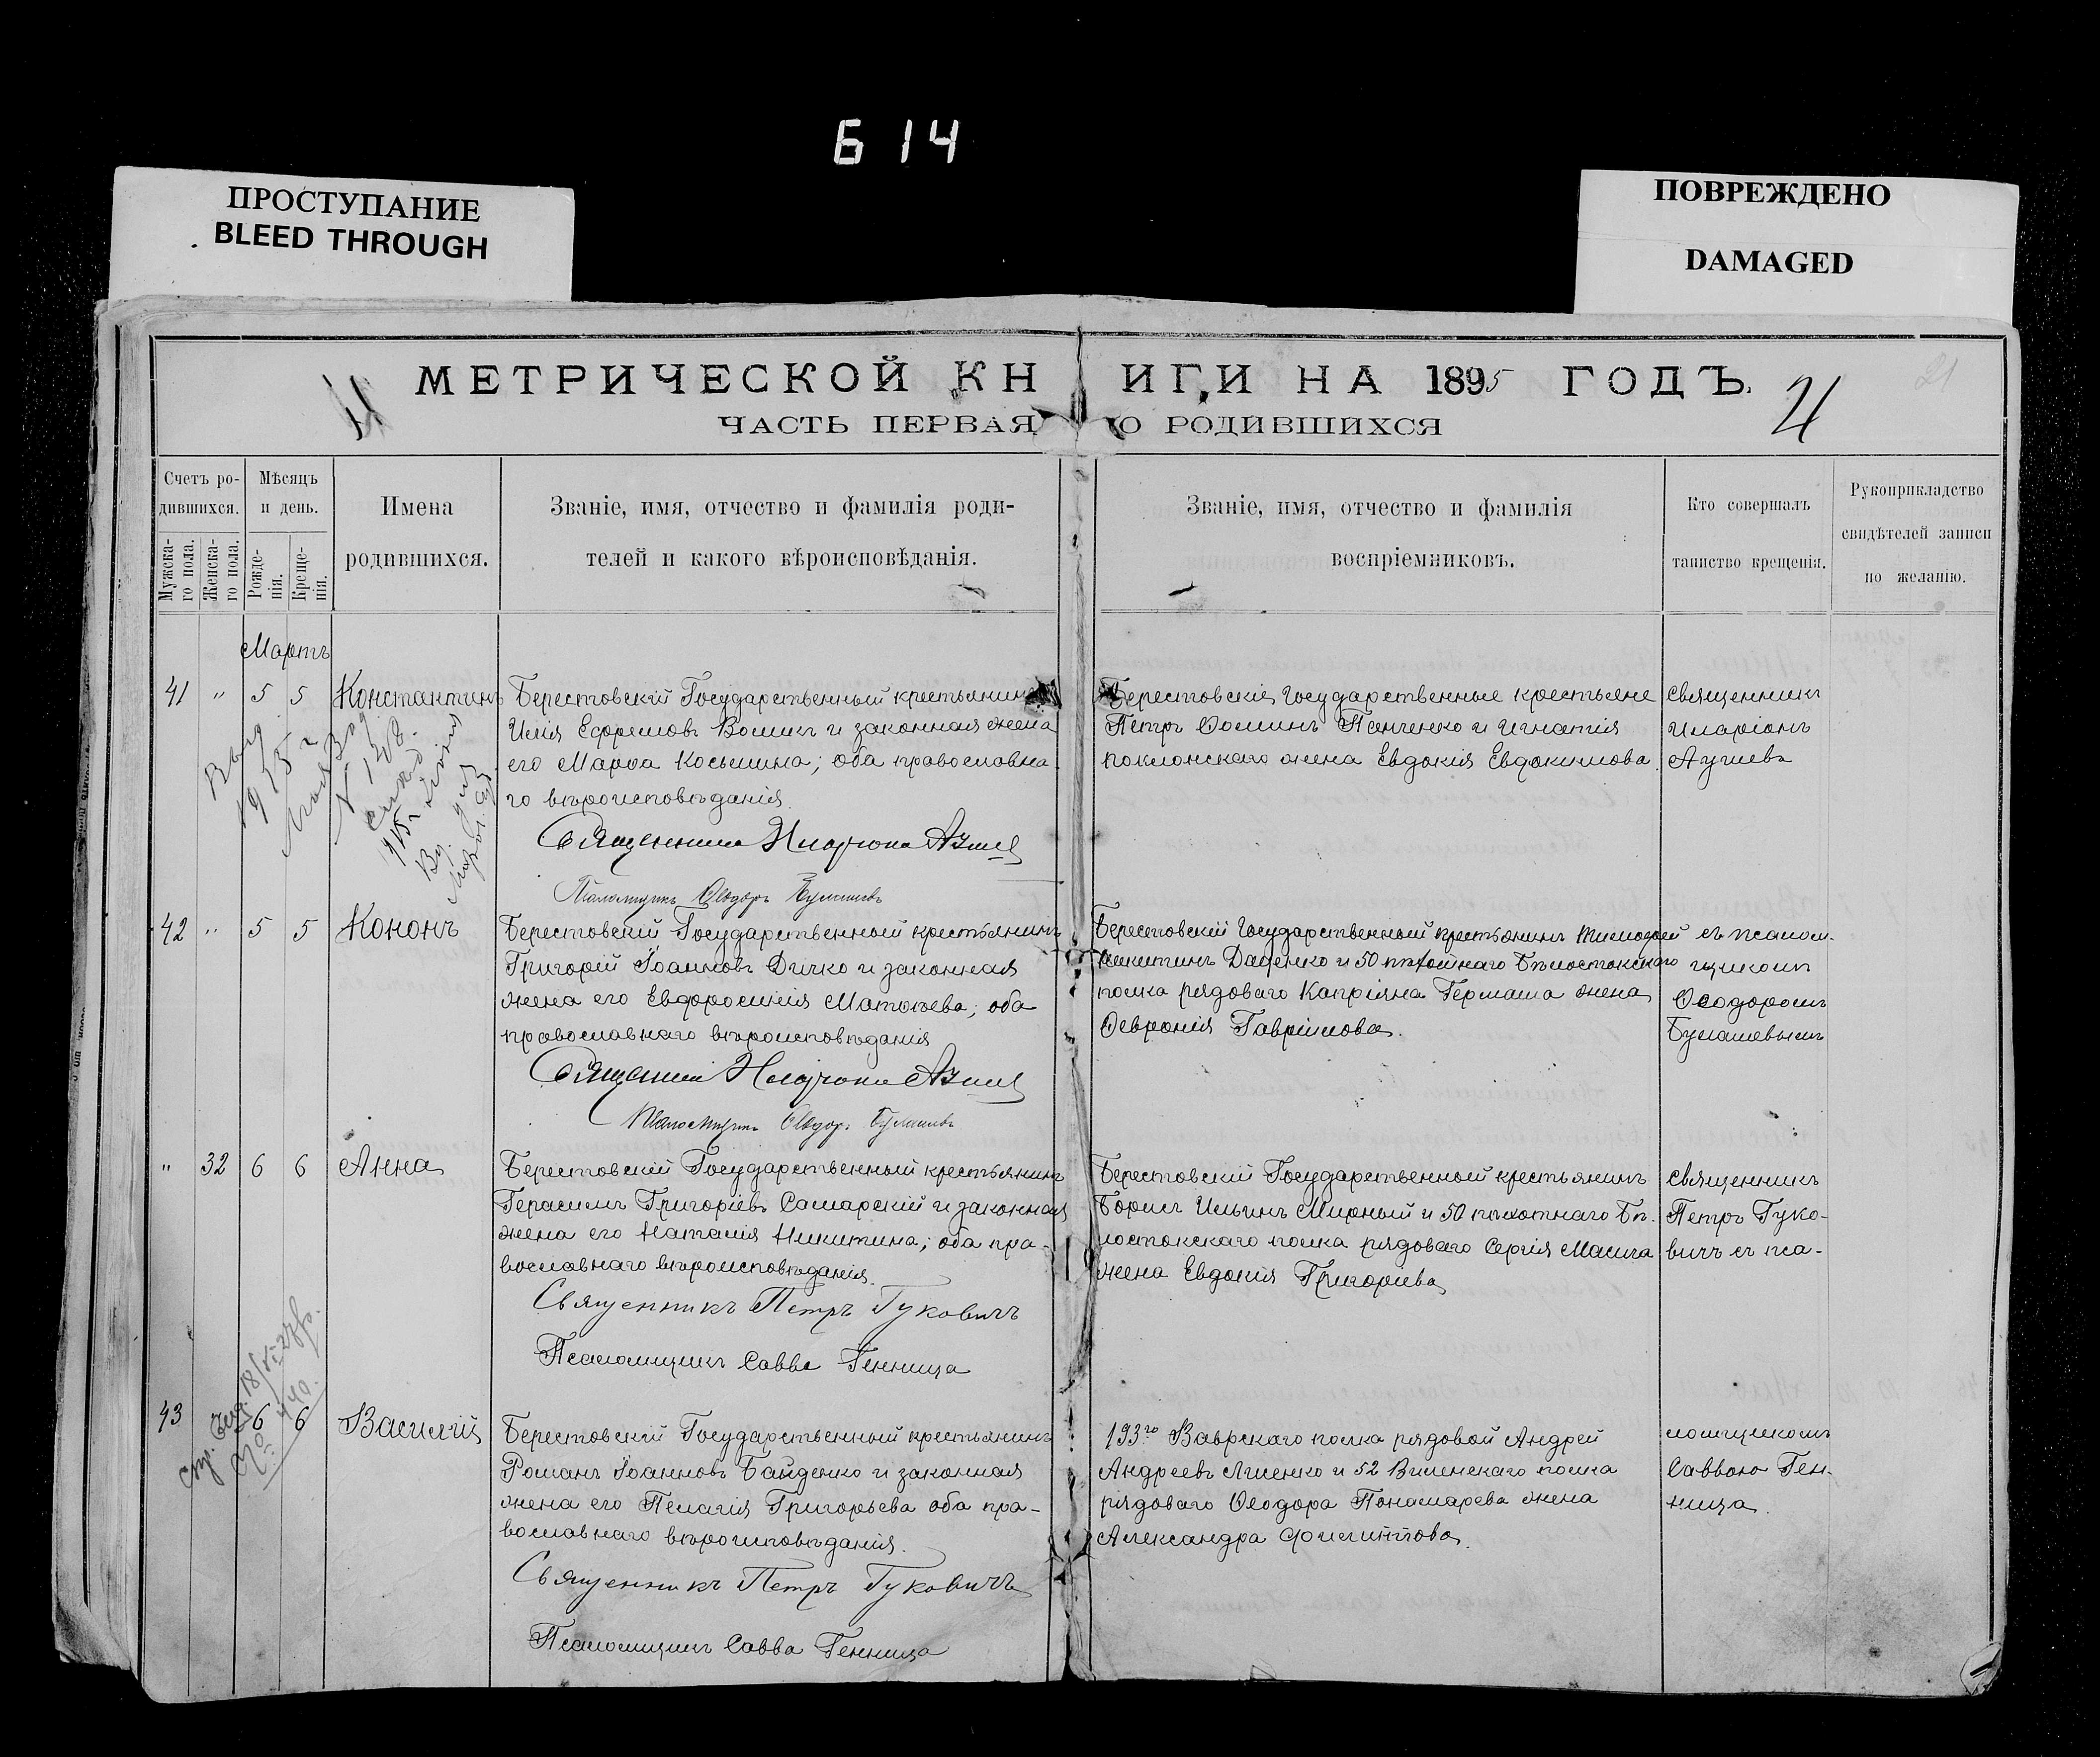 614
ПРОСТУПАНИЕ
BLEED THROUGH
ПОВРЕЖДЕНО
DAMAGED
МЕТРИЧЕСКОЙ КНИГИ НА 1895 ГОДЪ.
ЧАСТЬ ПЕРВАЯ О РОДИВШИХСЯ
21
Счетъ ро-
дившихся.
Мужска-
го пола.
Женска-
го пола.
Мѣсяцъ
и день.
Рожде-
нія.
Креще-
нія.
Имена
родившихся.
Званіе, имя, отчество и фамилія роди-
телей и какого вѣроисповѣданія.
Званіе, имя, отчество и фамилія
воспріемниковъ.
Кто совершалъ
таинство крещенія.
Рукоприкладство
свидѣтелей записи
по желанію.
Мартъ
41 " 5 5 Константинъ
Берестовскій Государственный крестьянинъ
Илія Ефремовъ Воликъ и законная жена
его Марѳа Косьмина; оба православна
го вѣроисповѣданія.
Священникъ Иларіонъ
Псаломщикъ Ѳеодоръ Булашевъ
Берестовскіе Государственные крестьяне
Петръ Ѳоминъ Панченко и Игнатія
Поклонскаго жена Евдокія Евдокимова.
Священникъ
Иларіонъ
42 " 5 5 Кононъ
Берестовскій Государственный крестьянинъ
Григорій Іоанновъ Дичко и законная
жена его Евфросинія Матѳеева; оба
православнаго вѣроисповѣданія
Священникъ Иларіонъ
Псаломщикъ Ѳеодоръ Булашевъ
Берестовскій Государственный крестьянинъ Тимоѳей
Никитинъ Даценко и 50 пѣхотнаго Бѣлостокскаго
полка рядоваго Капріяна Гермаша жена
Ѳевронія Гавріилова.
съ псалом-
щикомъ
Ѳеодоромъ
Булашевымъ
" 32 6 6 Анна
Берестовскій Государственный крестьянинъ
Герасимъ Григоріевъ Самарскій и законная
жена его Наталія Никитина; оба пра-
вославнаго вѣроисповѣданія.
Священникъ Петръ Гуковичъ
Псаломщикъ Савва Генница
Берестовскій Государственный крестьянинъ
Борисъ Ильинъ Мирный и 50 пѣхотнаго Бѣ-
лостокскаго полка рядоваго Сергія Масича
жена Евдокія Григоріева
Священникъ
Петръ Гуко-
вичъ съ пса-
43 6 6 Василій
Берестовскій Государственный крестьянинъ
Романъ Іоанновъ Байденко и законная
жена его Пелагія Григорьева оба пра-
вославнаго вѣроисповѣданія.
Священникъ Петръ Гуковичъ
Псаломщикъ Савва Генница
193го полка рядовой Андрей
Андреевъ Лисенко и 52 Виленскаго полка
рядоваго Ѳеодора Пономарева жена
Александра Филиппова.
ломщикомъ
Саввою Ген-
ница.